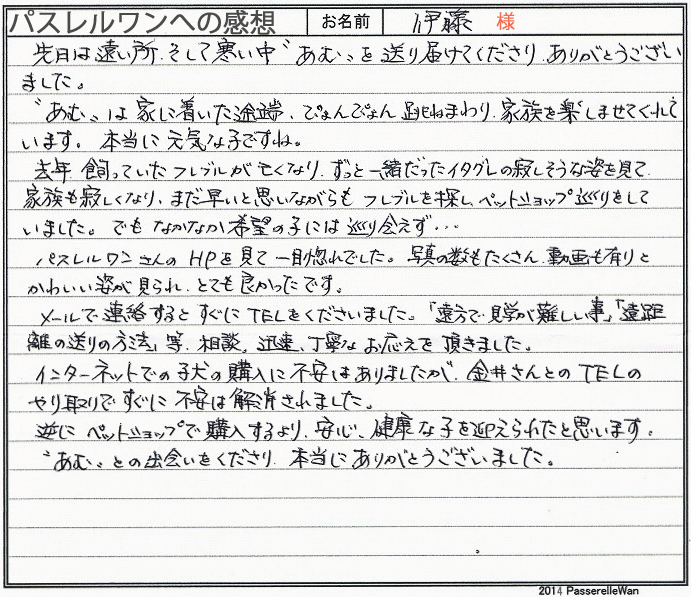 パスレルワンへの感想 お名前 伊藤 様
先日は遠い所、そして寒い中〝あむ〟を送り届けてくださり、ありがとうござい
ました。
〝あむ〟は家に着いた途端、ぴょんぴょん跳ねまわり、家族を楽しませてくれて
います。本当に元気な子ですね。
去年、飼っていたフレブルが亡くなり、ずっと一緒だったイタグレの寂しそうな姿を見て、
家族も寂しくなり、まだ早いと思いながらも フレブルを探し、ペットショップ巡りをして
いました。でも なかなか希望の子には巡り会えず・・・
パスレルワンさんのHPを見て一目惚れでした。写真の数もたくさん、動画も有りと
かわいい姿が見られ、とても良かったです。
メールで連絡するとすぐにTELをくださいました。「遠方で見学が難しい事」「遠距
離の送りの方法」等、相談、迅速、丁寧なお応えを頂きました。
インターネットでの子犬の購入に不安はありましたが、金井さんとのTELの
やり取りですぐに不安は解消されました。
逆にペットショップで購入するより、安心、健康な子を迎えられたと思います。
〝あむ〟との出会いをくださり、本当にありがとうございました。
2014 PasserelleWan